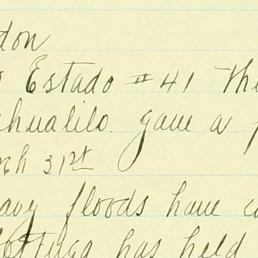 don
Estado #41 The
hualilo gave a
ch 31st
avy floods have c
has held